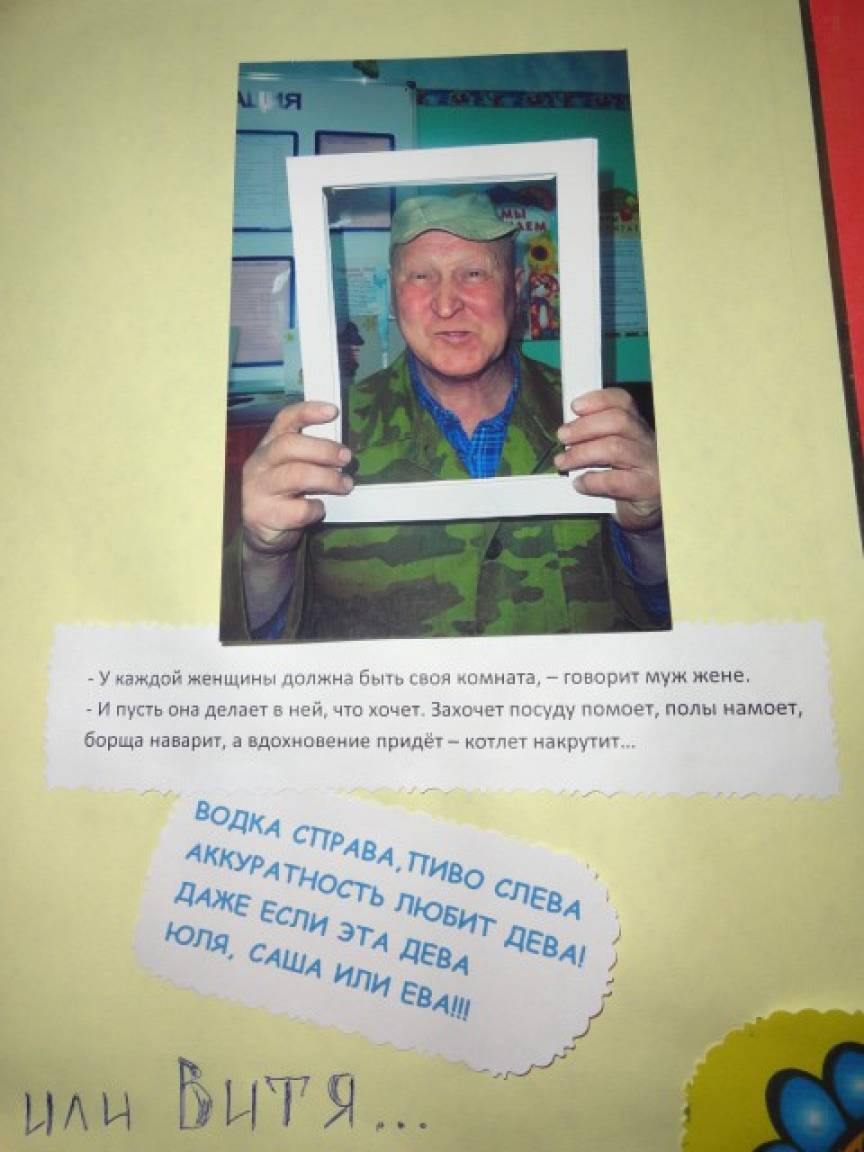 АЦИЯ
МЫ
- У каждой женщины должна быть своя комната, – говорит муж жене.
- И пусть она делает в ней, что хочет. Захочет посуду помоет, полы намоет,
борща наварит, а вдохновение придёт – котлет накрутит...
ВОДКА СПРАВА, ПИВО СЛЕВА
АККУРАТНОСТЬ ЛЮБИТ ДЕВА!
ДАЖЕ ЕСЛИ ЭТА ДЕВА
ЮЛЯ, САША ИЛИ ЕВА!!!
или Витя...